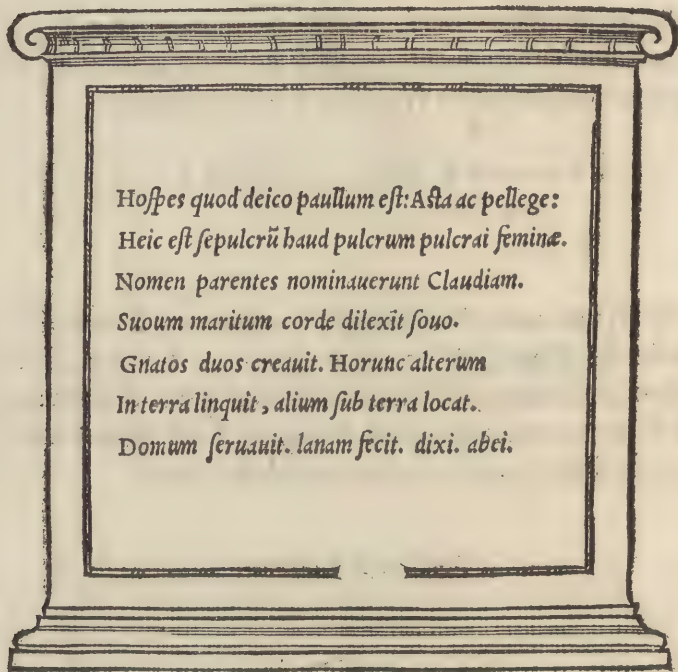 Hoſpes quod deico paullum eſt: Aſta ac pellege:
Heic eſt ſepulcrū haud pulcrum pulcrai feminæ.
Nomen parentes nominauerunt Claudiam.
Suoum maritum corde dilexit ſouo.
Gnatos duos creauit. Horunc alterum
In terra linquit, alium ſub terra locat.
Domum ſeruauit. lanam fecit. dixi. abei.